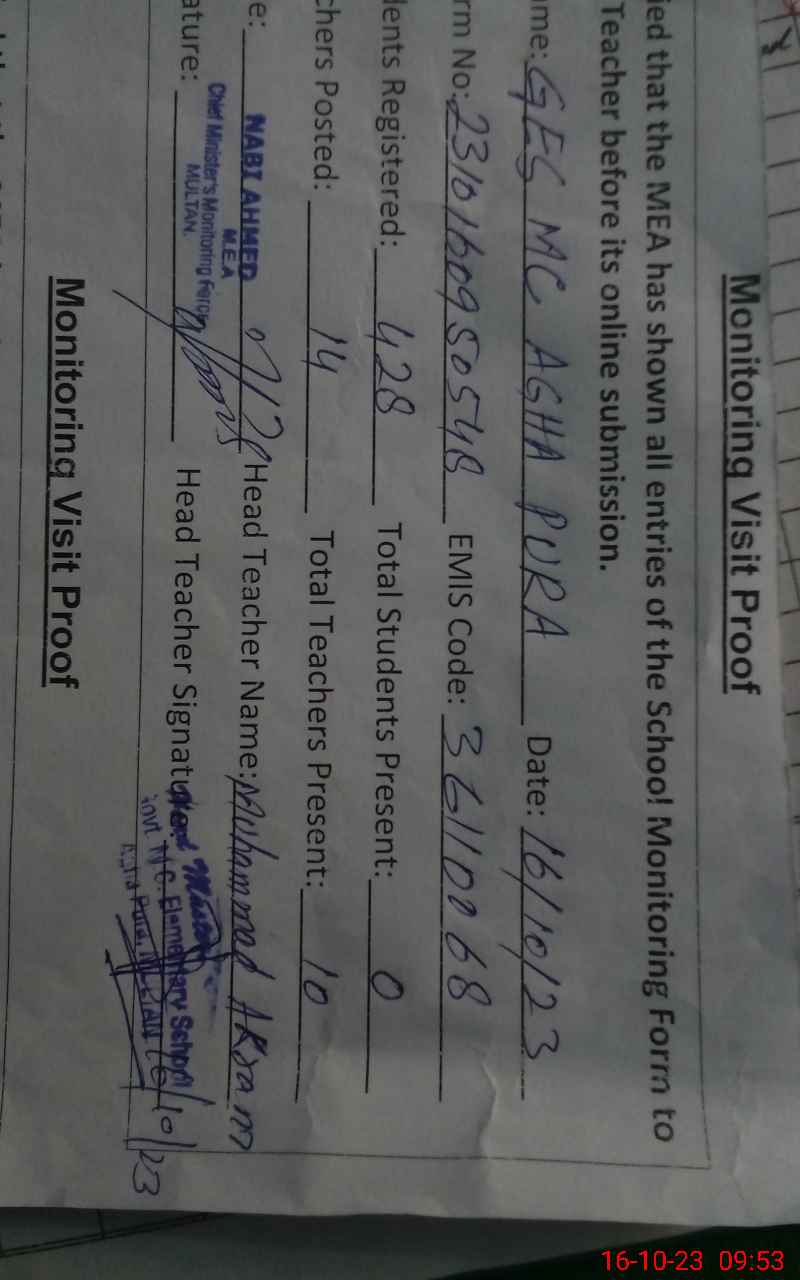 Monitoring Visit Proof
ied that the MEA has shown all entries of the School Monitoring Form to
Teacher before its online submission.
me: GES MC AGHA PURA Date: 16/10/23
rm No: 2310160950548 EMIS Code: 36110068
dents Registered: 428 Total Students Present: 0
chers Posted: 14 Total Teachers Present: 10
e: Head Teacher Name: Muhammad Akram
NABI AHMED
M.E.A
Chief Minister's Monitoring Force
MULTAN.
ature: Head Teacher Signature:
Head Master
Govt. M.C. Elementary School
Agha Pura, MULTAN
16/10/23
Monitoring Visit Proof
16-10-23 09:53